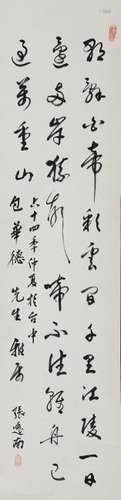 朝辭白帝彩雲間千里江陵一日
還兩岸猿聲啼不住輕舟已
過萬重山
六十四年仲夏於台中
包華德先生雅屬
張 南